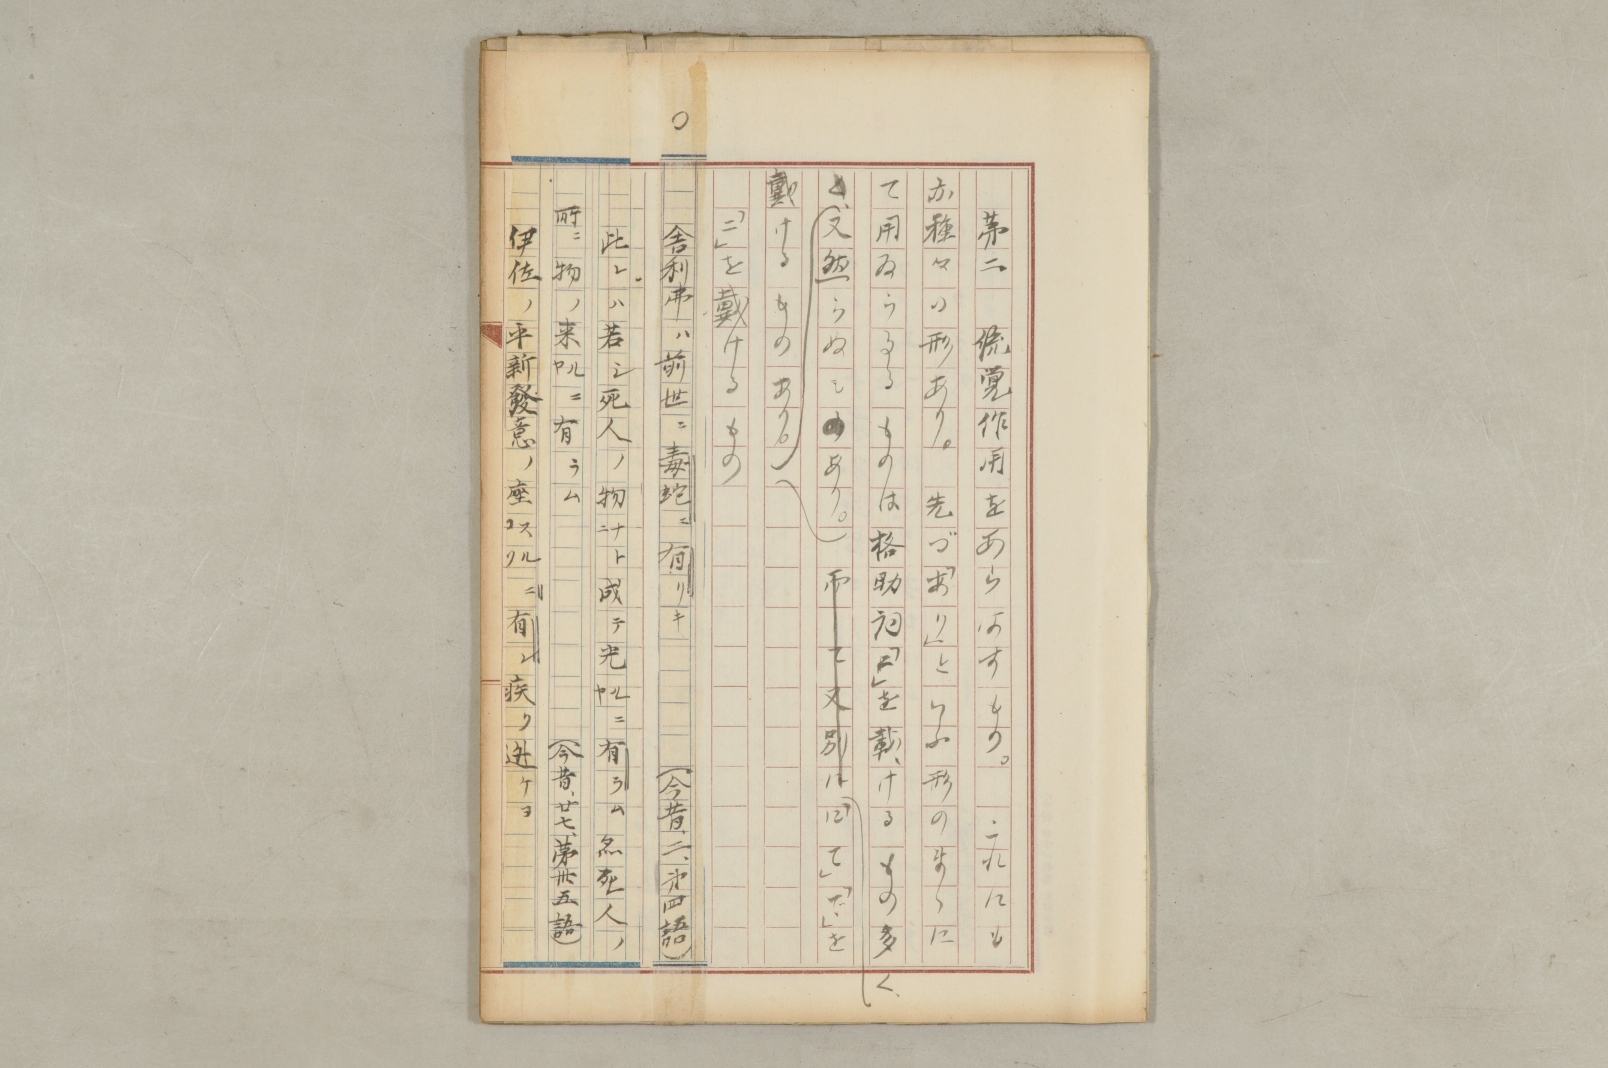 第二 統覚作用をあらはすもの。これにも
亦種々の形あり。先づ「あり」といふ形のまゝに
て用ゐらるゝものは格助詞「ニ」を戴けるもの多く、
又然らぬもあり。而して又別に「にて」「で」を
戴けるものあり。
「ニ」を戴けるもの
○ 舎利弗ハ前世ニ毒蛇ニ有リキ (今昔、二、第四語)
此レハ若シ死人ノ物ニナト成テ光ルニヤ有ラム 然死人ノ
所ニ物ノ来ルニヤ有ラム (今昔、廿七、第卅五語)
伊佐ノ平新發意ノ座スルニコソ有レ 疾ク逃ケヨ